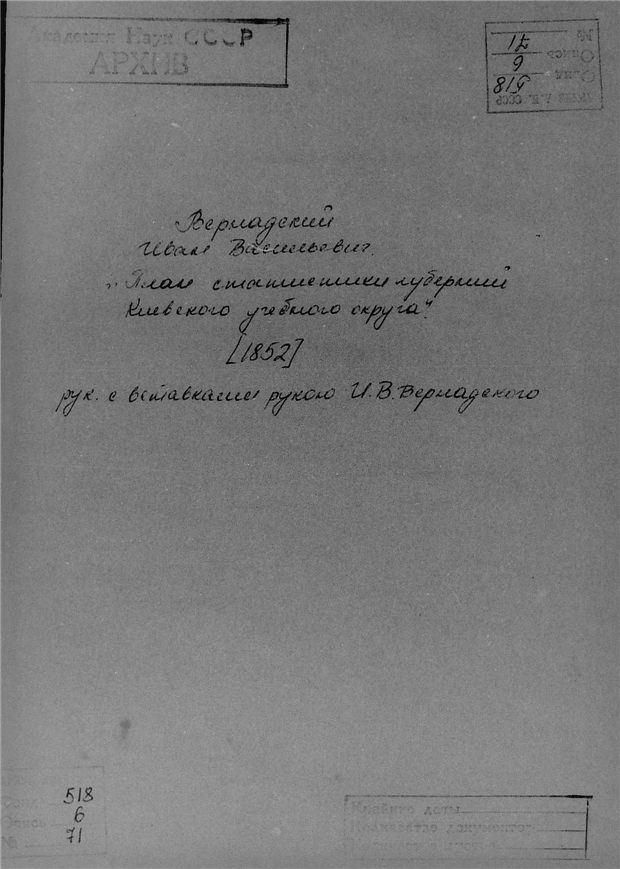 Академия Наук СССР
АРХИВ
№ 71
Опись 6
Фонд 518
Архив А.Н. СССР
Вернадский
Иван Васильевич.
"План статистики губерний
Киевского учебного округа".
[1852]
рук. с вставками рукою И.В. Вернадского
Фонд 518
Опись 6
№ 71
Крайние даты
Количество документов